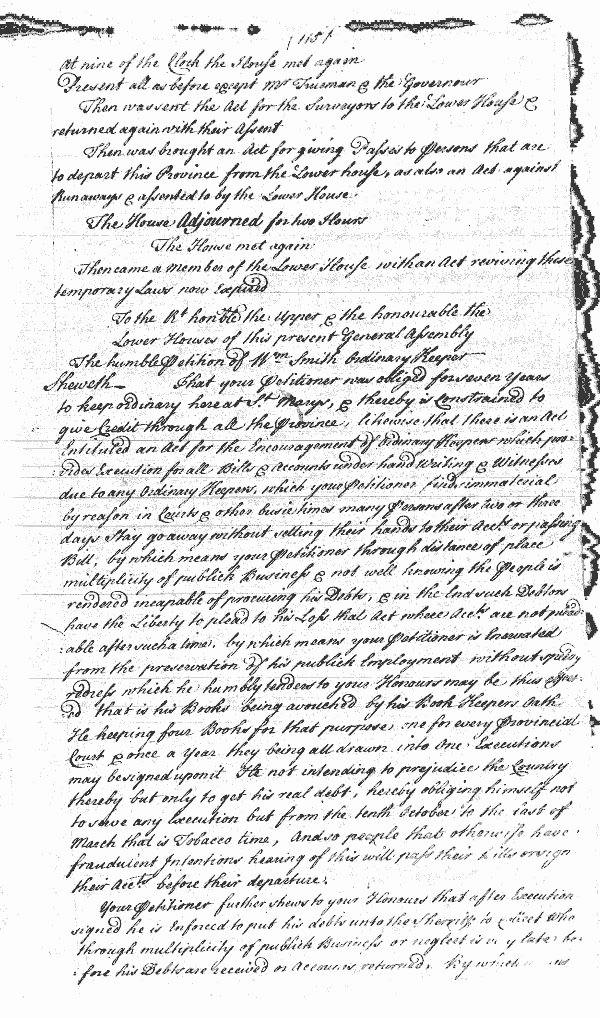 (115)
At nine of the Clock the House met again
Present all as before except Mr Trueman & the Governour
Then was sent the Act for the Surveyors to the Lower House &
returned again with their Assent
Then was brought an Act for giving Passes to Persons that are
to depart this Province from the Lower house, as also an Act against
Runaways & assented to by the Lower House
The House Adjourned for two Hours
The House met again
Then came a Member of the Lower House with an Act reviving these
temporary Laws now Expired
To the Rt honble the Upper & the honourable the
Lower Houses of this present General Assembly
The humble Petition of Wm Smith Ordinary Keeper
Sheweth That your Petitioner was obliged for seven Years
to keep ordinary here at St Marys, & thereby is Constrained to
give Credit through all the Province, likewise that there is an Act
Entituled an Act for the Encouragement of Ordinary Keepers which pro-
vides Execution for all Bills & Accounts under hand Writing & Witnesses
due to any Ordinary Keepers, which your Petitioner finds immaterial
by reason in Courts & other busie times many Persons after two or three
days Stay go away without setting their hands to their Accts or passing
Bill, by which means your Petitioner through distance of place
multiplicity of publick Business & not well knowing the People is
rendered incapable of procuring his Debts, & in the End such Debtors
have the Liberty to plead to his Loss that Act where Accts are not plead-
able after such a time, by which means your Petitioner is Enervated
from the preservation of his publick Employment without speedy
redress which he humbly tenders to your Honours may be thus
that is his Books being avouched by his Book Keepers Oath
He keeping four Books for that purpose one for every Provincial
Court & once a Year they being all drawn into One Executions
may be signed upon it He not intending to prejudice the Country
thereby but only to get his real debt, hereby obliging himself not
to serve any Execution but from the tenth October to the last of
March that is Tobacco time, And so people that otherwise have
fraudulent Intentions hearing of this will pass their bills or sign
their Accts before their departure.
Your Petitioner further shews to your Honours that after Execution
signed he is Enforced to put his debts unto the Sherriffs to Collect who
through multiplicity of publick Business or neglect is very late be-
fore his Debts are received or Accounts returned. By which